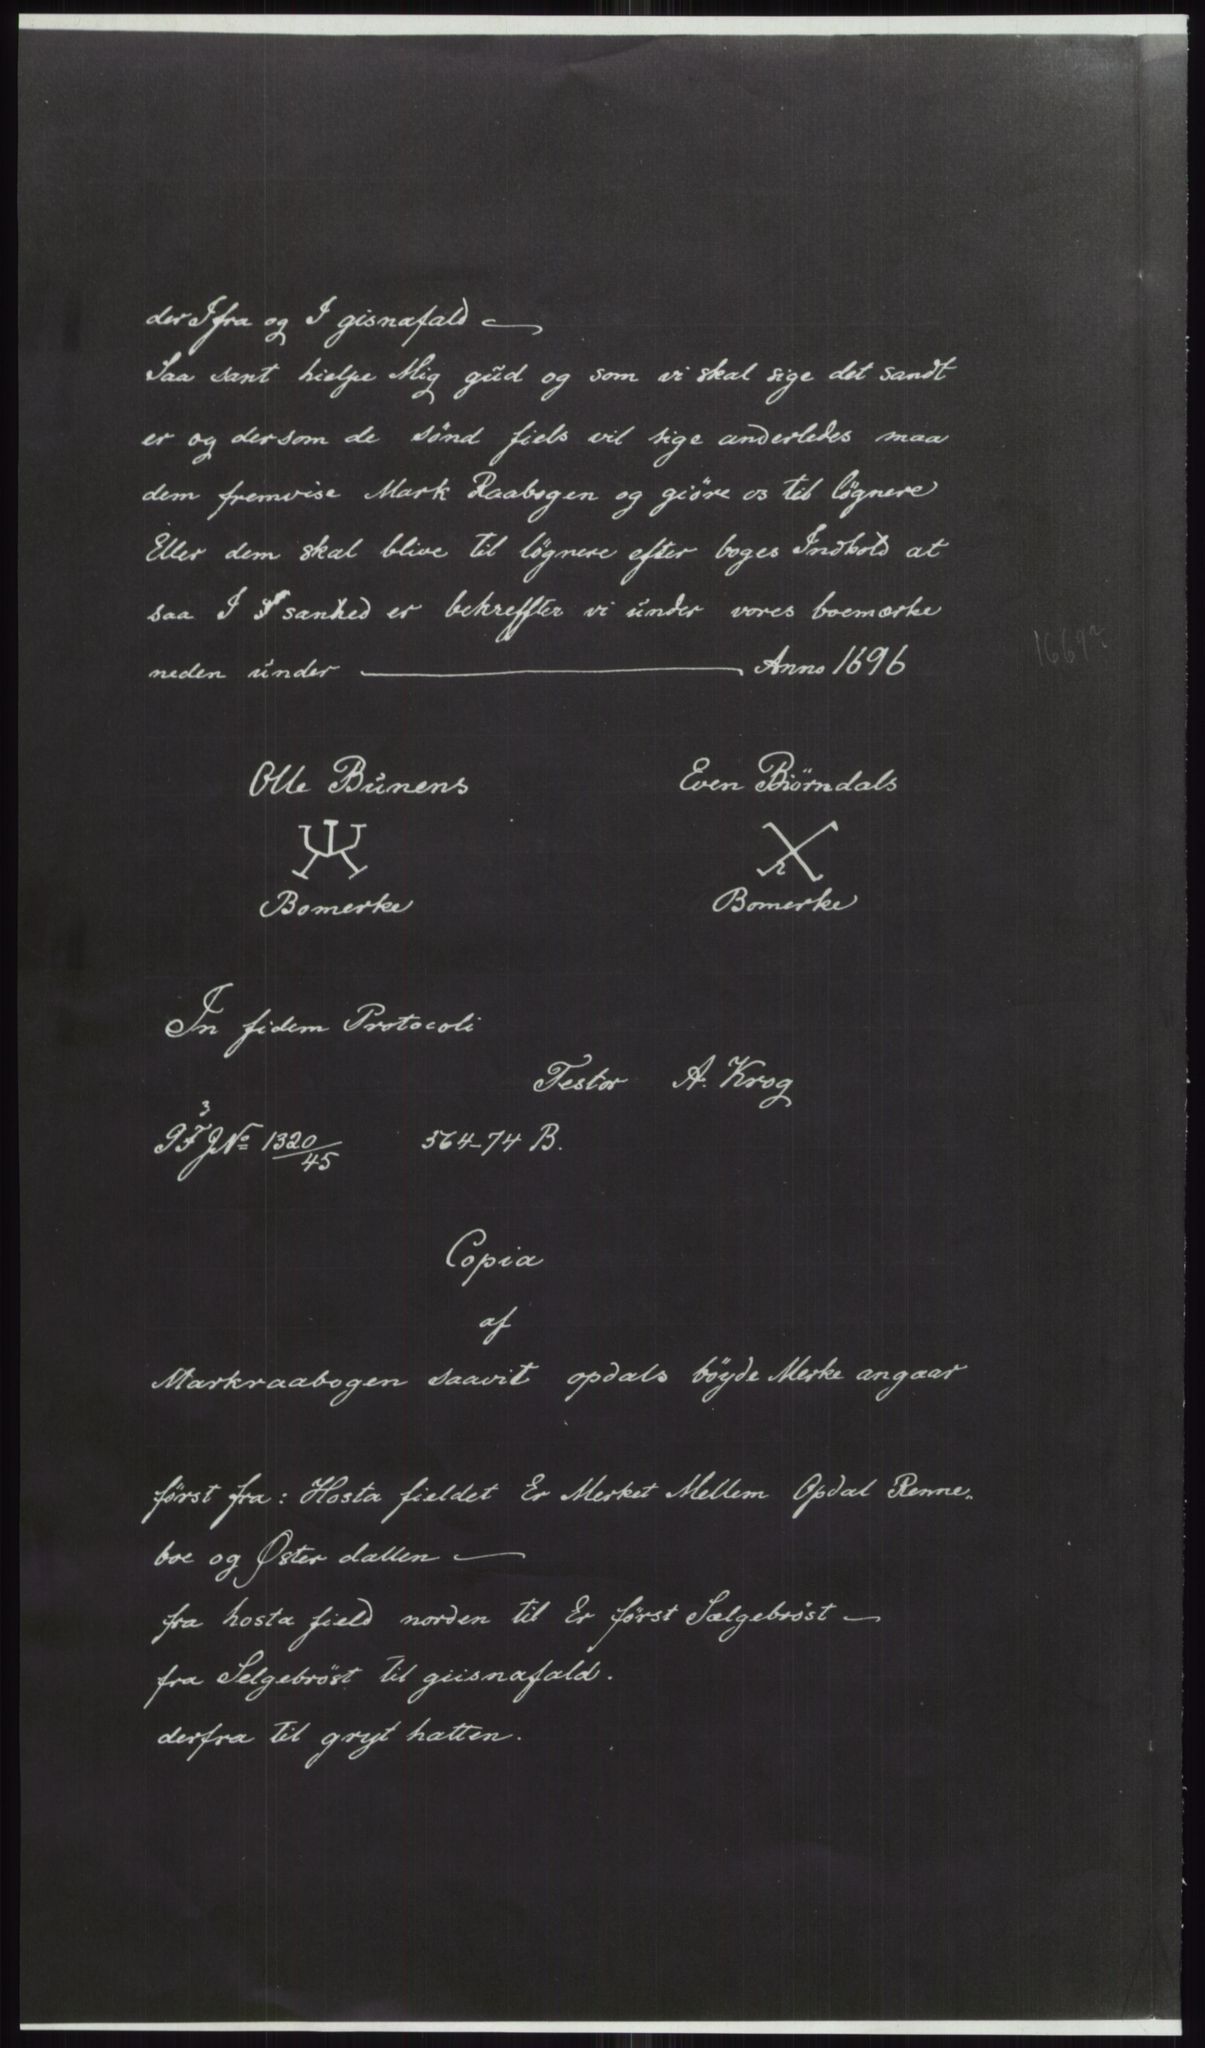 der Ifra og I gisnafald —
Saa sant hielpe Mig gŭd og som vi skal sige det sandt
er og dersom de sönd fiels vil sige anderledes maa
dem fremvise Mark Raabogen og giöre os til lögnere
Eller dem skal blive til lögnere efter boges Indhold at
saa I sanhed er bekreffter vi ŭnder vores boemærke
neden ŭnder — Anno 1696
1669?
Olle Bŭnens Even Biörndals
Bomerke Bomerke
In fidem Protocoli
Testor A. Krog
JNo 1320/45 564-74 B.
Copia
af
Markraabogen saavit opdals böyde Merke angaar
först fra: Hosta fieldet Er Merket Mellem Opdal Renne„
boe og Øster dallen —
fra hosta field norden til Er först Sælgebröst —
fra Selgebröst til giisnafald.
derfra til gryt hatten.